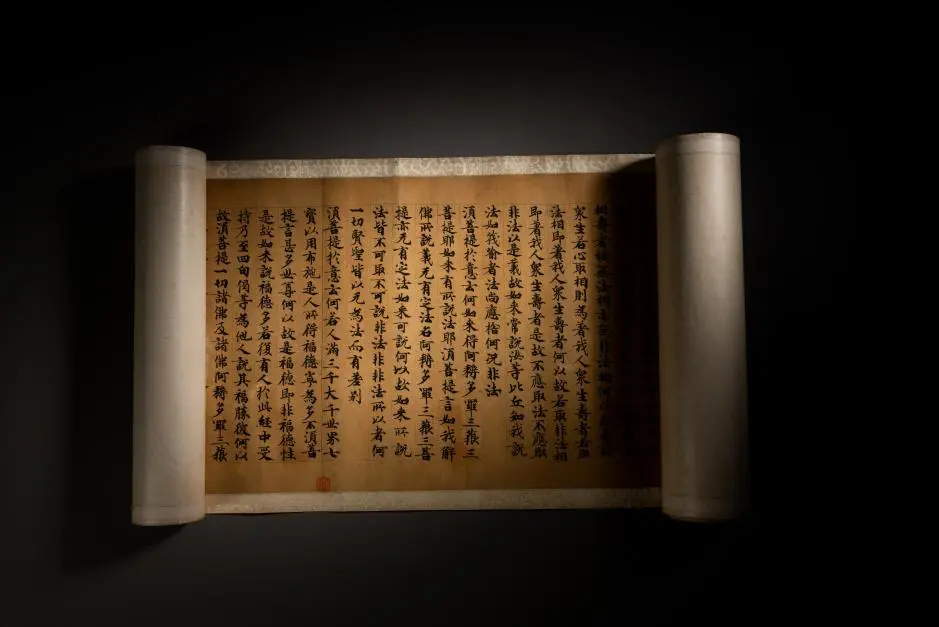 相壽者相无法相亦无非法相何以故是諸
衆生若心取相則為著我人衆生壽者若取
法相即著我人衆生壽者何以故若取非法相
即著我人衆生壽者是故不應取法不應取
非法以是義故如來常說汝等比丘知我說
法如筏喻者法尚應捨何況非法
須菩提於意云何如來得阿耨多羅三藐三
菩提耶如來有所說法耶須菩提言如我解
佛所說義无有定法名阿耨多羅三藐三菩
提亦无有定法如來可說何以故如來所說
法皆不可取不可說非法非非法所以者何
一切賢聖皆以无為法而有差別
須菩提於意云何若人滿三千大千世界七
寶以用布施是人所得福德寧為多不須菩
提言甚多世尊何以故是福德即非福德性
是故如來說福德多若復有人於此經中受
持乃至四句偈等為他人說其福勝彼何以
故須菩提一切諸佛及諸佛阿耨多羅三藐